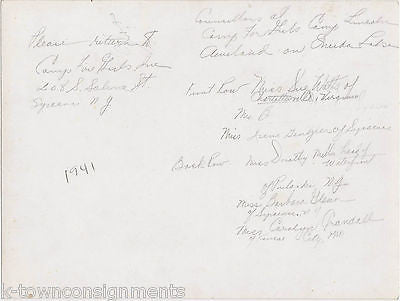 Please return to
Camp for Girls Inc
208 S. Salina St.
Syracuse N.Y.
1941
Councillors at
Camp for Girls Camp Lincoln
on Oneida Lake
Front Row Miss Sue Watts of
Charlottesville, Virginia
Me
Miss Irene of Syracuse
Back Row Miss Dorothy head of
Waterfront
of Pulaski, N.Y.
Miss Barbara
of Syracuse, N.Y.
Miss Carolyn Crandall
of Kansas City, Mo
k-townconsignments.com